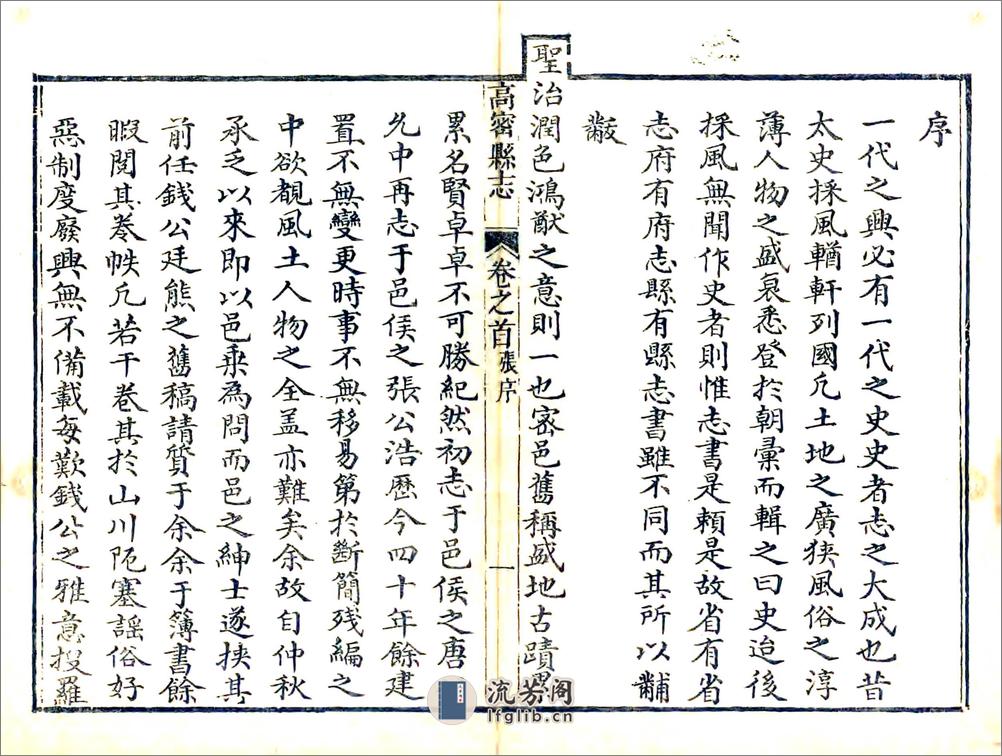 序
一代之興必有一代之史史者志之大成也昔
太史採風輶軒列國凡土地之廣狹風俗之淳
薄人物之盛衰悉登於朝彙而輯之曰史迨後
採風無聞作史者則惟志書是賴是故省有省
志府有府志縣有縣志書雖不同而其所以黼
黻
聖治潤色鴻猷之意則一也密邑舊稱盛地古蹟累
高密縣志 卷之首 張序 一
累名賢卓卓不可勝紀然初志于邑侯之唐
允中再志于邑侯之張公浩歷今四十年餘建
置不無變更時事不無移易第於斷簡残編之
中欲覩風土人物之全盖亦難矣余故自仲秋
承乏以來即以邑乘為問而邑之紳士遂挾其
前任錢公廷熊之舊稿請質于余余于簿書餘
暇閱其卷帙凡若干卷其於山川阨塞謠俗好
惡制度廢興無不備載每歎錢公之雅意搜羅
流芳阁
lfglib.cn